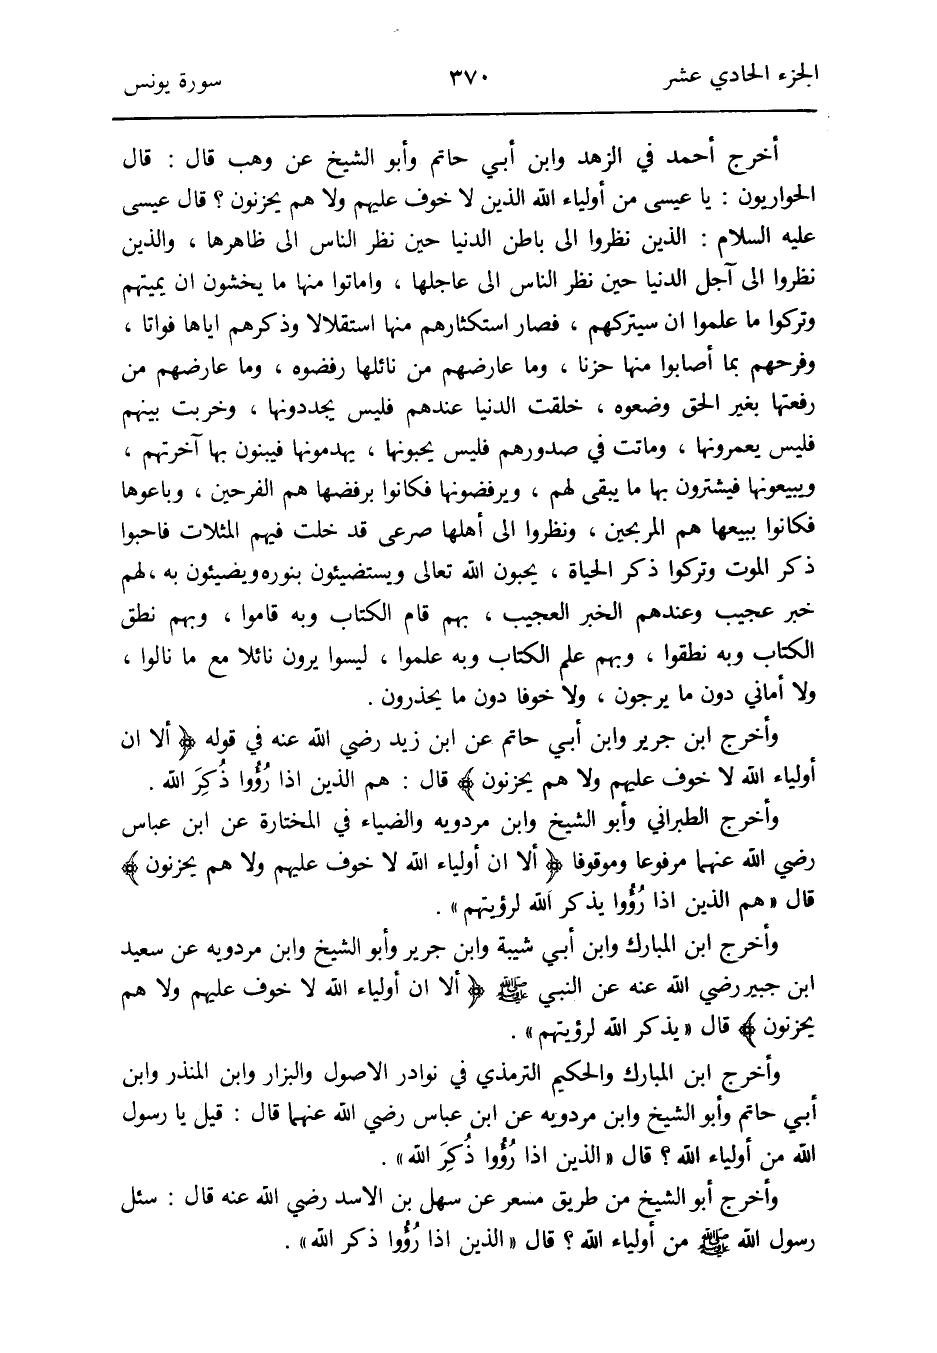 الجزء الحادي عشر ٣٧٠ سورة يونس
أخرج أحمد في الزهد وابن أبـي حاتم وأبو الشيخ عن وهب قال : قال
الحواريون : يا عيسى من أولياء الله الذين لا خوف عليهم ولا هم يحزنون ؟ قال عيسى
عليه السلام : الذين نظروا الى باطن الدنيا حين نظر الناس الى ظاهرها ، والذين
نظروا الى آجل الدنيا حين نظر الناس الى عاجلها ، واماتوا منها ما يخشون ان يميتهم
وتركوا ما علموا ان سيتركهم ، فصار استكثارهم منها استقلالا وذكرهم اياها فواتا ،
وفرحهم بما أصابوا منها حزنا ، وما عارضهم من نائلها رفضوه ، وما عارضهم من
رفعتها بغير الحق وضعوه ، خلقت الدنيا عندهم فليس يجددونها ، وخربت بينهم
فليس يعمرونها ، وماتت في صدورهم فليس يحبونها ، يهدمونها فيبنون بها آخرتهم ،
ويبيعونها فيشترون بها ما يبقى لهم ، ويرفضونها فكانوا برفضها هم الفرحين ، وباعوها
فكانوا ببيعها هم المربحين ، ونظروا الى أهلها صرعى قد خلت فيهم المثلات فاحبوا
ذكر الموت وتركوا ذكر الحياة ، يحبون الله تعالى ويستضيئون بنوره ويضيئون به ، لهم
خبر عجيب وعندهم الخبر العجيب ، بهم قام الكتاب وبه قاموا ، وبهم نطق
الكتاب وبه نطقوا ، وبهم علم الكتاب وبه علموا ، ليسوا يرون نائلا مع ما نالوا ،
ولا أماني دون ما يرجون ، ولا خوفا دون ما يحذرون .
وأخرج ابن جرير وابن أبـي حاتم عن ابن زيد رضي الله عنه في قوله ﴿ ألا ان
أولياء الله لا خوف عليهم ولا هم يحزنون ﴾ قال : هم الذين اذا رُؤُوا ذُكِرَ الله .
وأخرج الطبراني وأبو الشيخ وابن مردويه والضياء في المختارة عن ابن عباس
رضي الله عنهما مرفوعا وموقوفا ﴿ ألا ان أولياء الله لا خوف عليهم ولا هم يحزنون ﴾
قال « هم الذين اذا رُؤُوا يذكر الله لرؤيتهم » .
وأخرج ابن المبارك وابن أبـي شيبة وابن جرير وأبو الشيخ وابن مردويه عن سعيد
ابن جبير رضي الله عنه عن النبي ﷺ ﴿ ألا ان أولياء الله لا خوف عليهم ولا هم
يحزنون ﴾ قال « يذكر الله لرؤيتهم » .
وأخرج ابن المبارك والحكيم الترمذي في نوادر الاصول والبزار وابن المنذر وابن
أبـي حاتم وأبو الشيخ وابن مردويه عن ابن عباس رضي الله عنهما قال : قيل يا رسول
الله من أولياء الله ؟ قال « الذين اذا رُؤُوا ذُكِرَ الله » .
وأخرج أبو الشيخ من طريق مسعر عن سهل بن الاسد رضي الله عنه قال : سئل
رسول الله ﷺ من أولياء الله ؟ قال « الذين اذا رُؤُوا ذكر الله » .